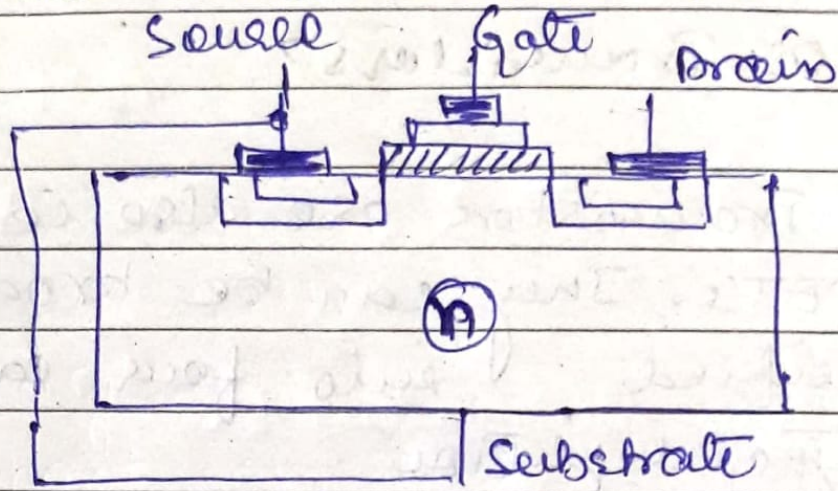 Source Gate Drain
n
Substrate